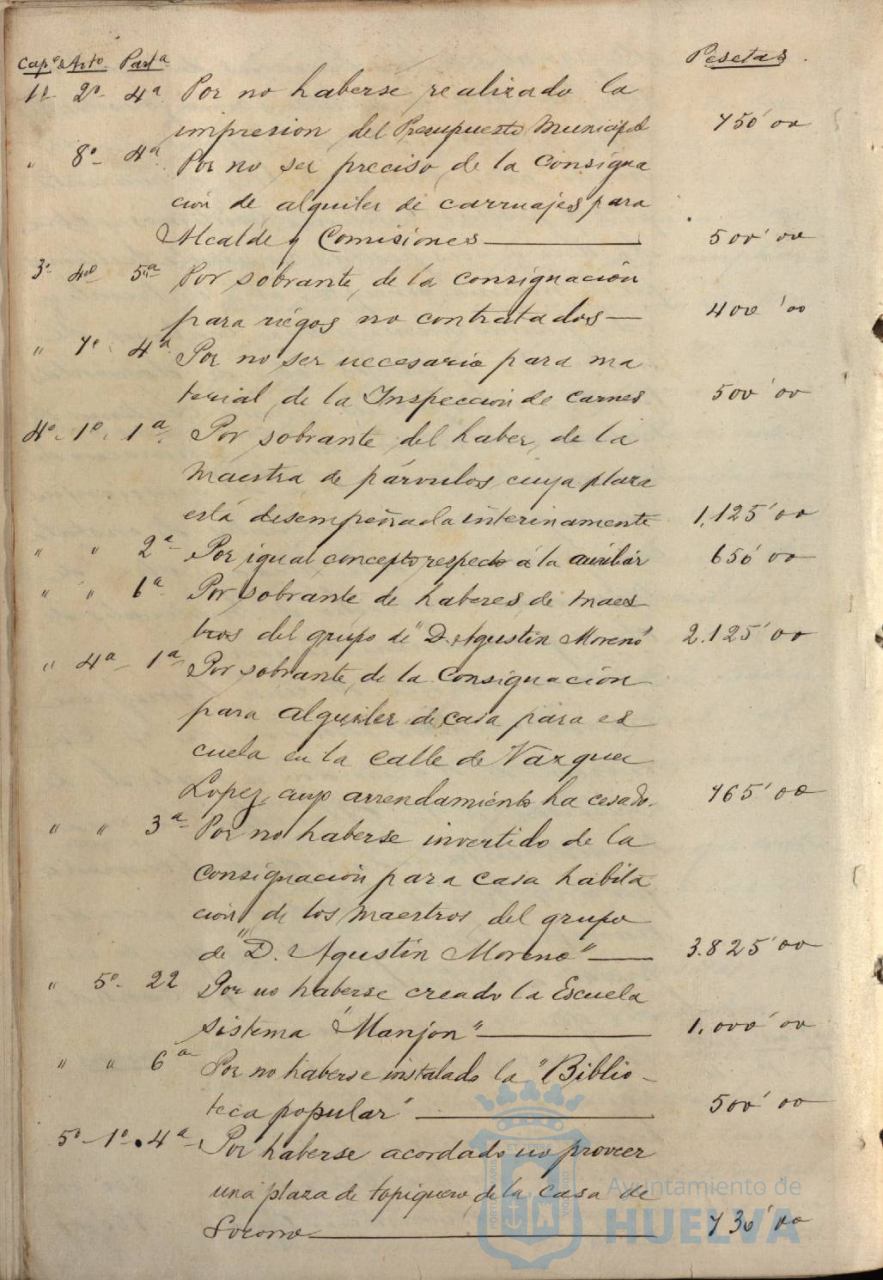 Capº Artº Partª Pesetas.
1º 2º 4ª Por no haberse realizado la
impresion del Presupuesto Municipal 750'00
" 8º 4ª Por no ser preciso de la consigna
ción de alquiler de carruajes para
Alcalde y Comisiones 500'00
3º 4º 5ª Por sobrante de la consignación
para riegos no contratados 400'00
" 7º 4ª Por no ser necesario para ma
terial de la Inspección de carnes 500'00
4º 1º 1ª Por sobrante del haber de la
Maestra de párvulos, cuya plaza
está desempeñada interinamente 1,125'00
" " 2ª Por igual concepto respecto á la auxiliar 650'00
" " 6ª Por sobrante de haberes de maes
tros del grupo de "D. Agustin Moreno" 2.125'00
" 4ª 1ª Por sobrante de la consignación
para alquiler de casa para es
cuela en la calle de Vazquez
Lopez, cuyo arrendamiento ha cesado. 765'00
" " 3ª Por no haberse invertido de la
consignación para casa habita
ción de los maestros del grupo
de "D. Agustin Moreno" 3.825'00
" 5º 22 Por no haberse creado la Escuela
sistema "Manjon" 1,000'00
" " 6ª Por no haberse instalado la "Biblio-
teca popular" 500'00
5º 1º 4ª Por haberse acordado no proveer
una plaza de topiquero de la Casa de
Socorro 730'00
Ayuntamiento de
HUELVA